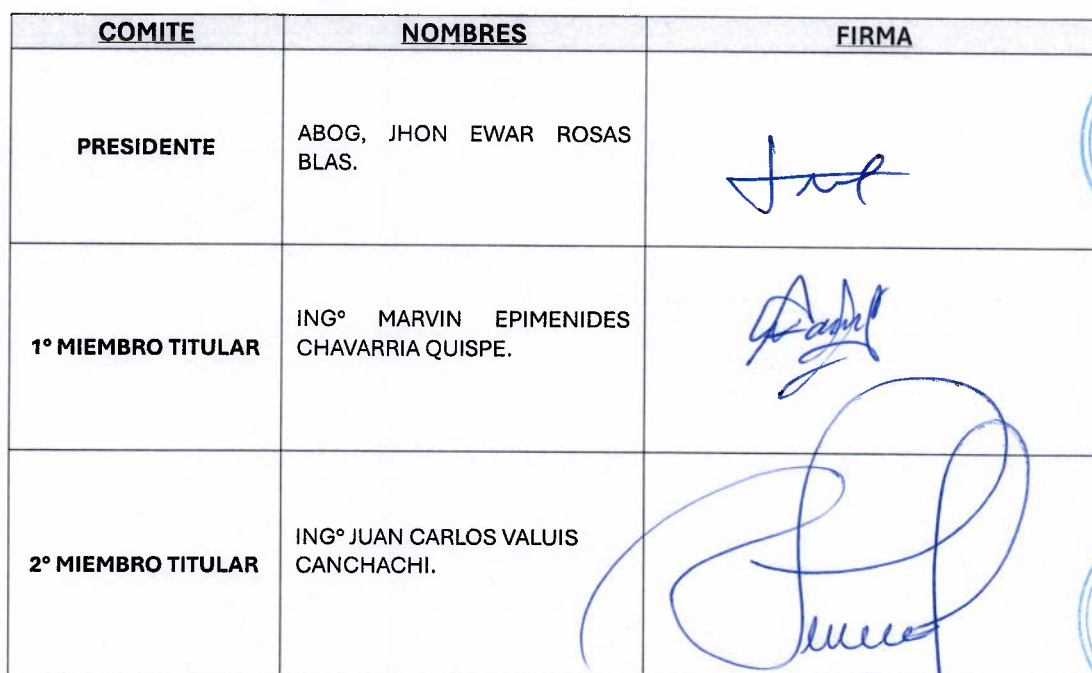 COMITE NOMBRES FIRMA
PRESIDENTE
ABOG, JHON EWAR ROSAS
BLAS.
1º MIEMBRO TITULAR
INGº MARVIN EPIMENIDES
CHAVARRIA QUISPE.
2º MIEMBRO TITULAR
INGº JUAN CARLOS VALUIS
CANCHACHI.